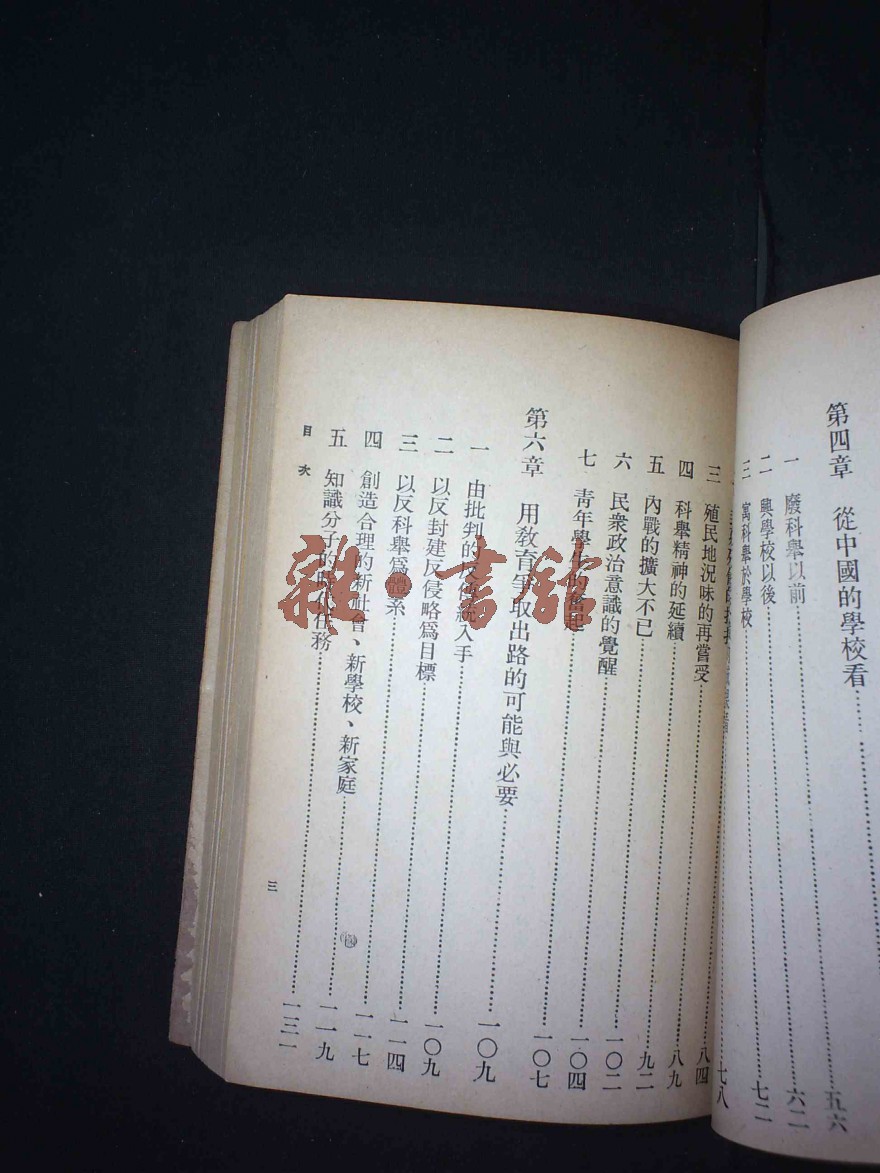 第四章 從中國的學校看……五六
一 廢科舉以前……六二
二 興學校以後……七二
三 寓科舉於學校……七八
八四
三 殖民地況味的再嘗受……八九
四 科舉精神的延續……九二
五 內戰的擴大不已……一〇二
六 民衆政治意識的覺醒……一〇四
七 青年學生的奮起……一〇七
第六章 用教育爭取出路的可能與必要……一〇九
一 由批判的反傳統入手……一〇九
二 以反封建反侵略爲目標……一一四
三 以反科舉爲體系……一一七
四 創造合理的新社會、新學校、新家庭……一一九
五 知識分子的時代任務……一三一
目次
三
雜·書館